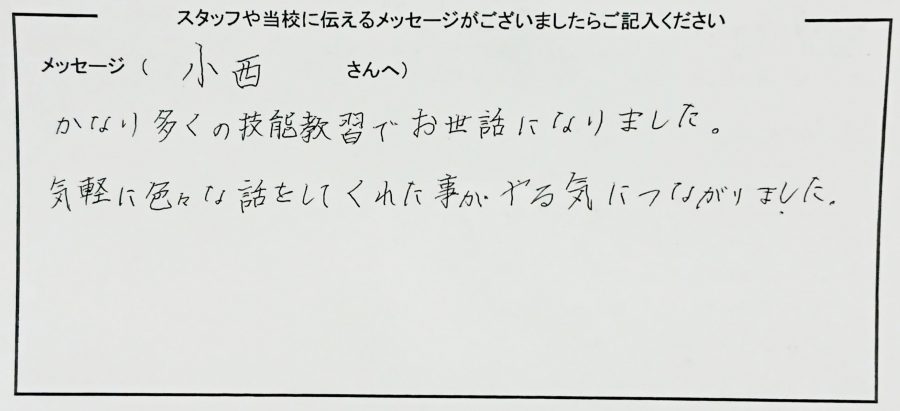 スタッフや当校に伝えるメッセージがございましたらご記入ください
メッセージ（ 小西 さんへ）
かなり多くの技能教習でお世話になりました。
気軽に色々な話をしてくれた事がやる気につながりました。